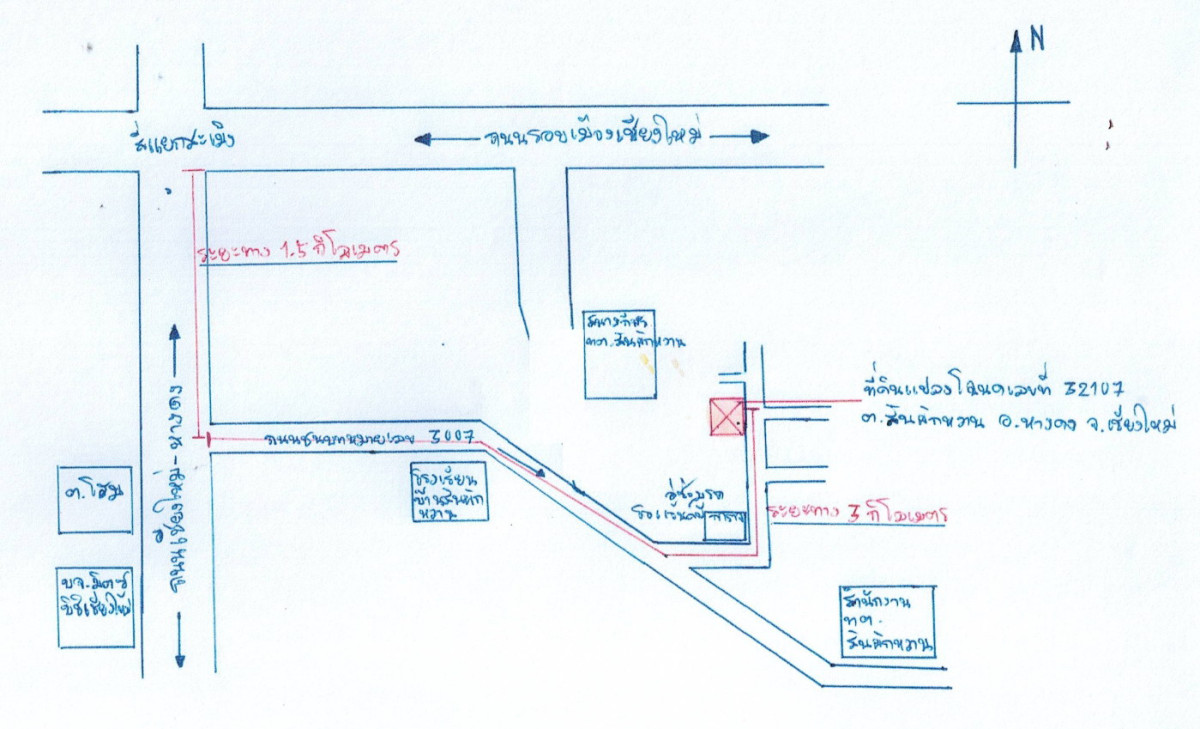 N
สี่แยกสะเมิง
ถนนรอบเมืองเชียงใหม่
ระยะทาง 1.5 กิโลเมตร
ทต.สันผักหวาน
ที่ดินแปลงโฉนดเลขที่ 32107
ต.สันผักหวาน อ.หางดง จ.เชียงใหม่
ถนนเชียงใหม่-หางดง
ถนนชนบทหมายเลข 3007
โรงเรียน
บ้านสันผัก
หวาน
อู่ซ่อมรถ
ระยะทาง 3 กิโลเมตร
สำนักงาน
ทต.
สันผักหวาน